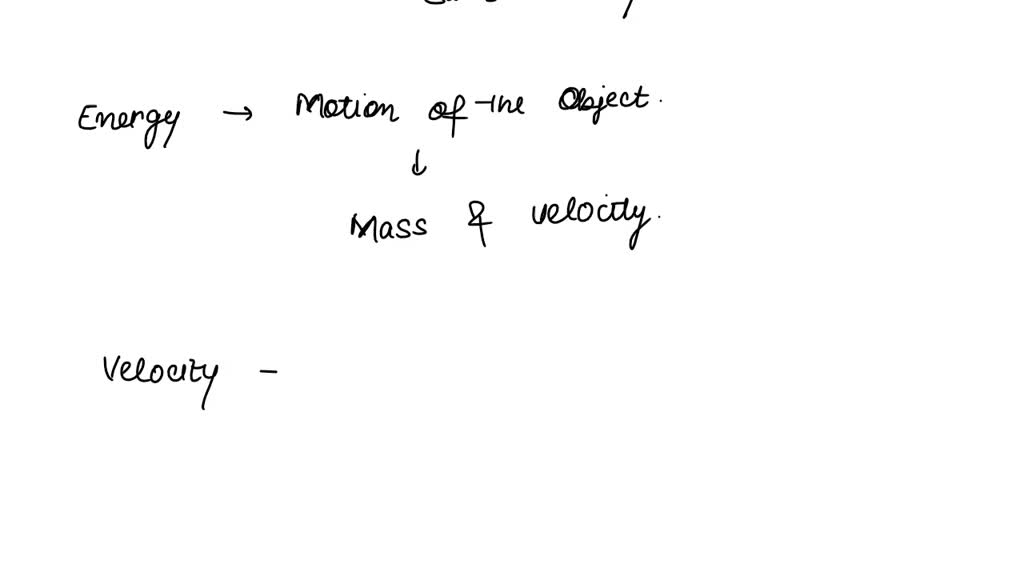 Energy → Motion of the Object.
↓
Mass & velocity.
Velocity -